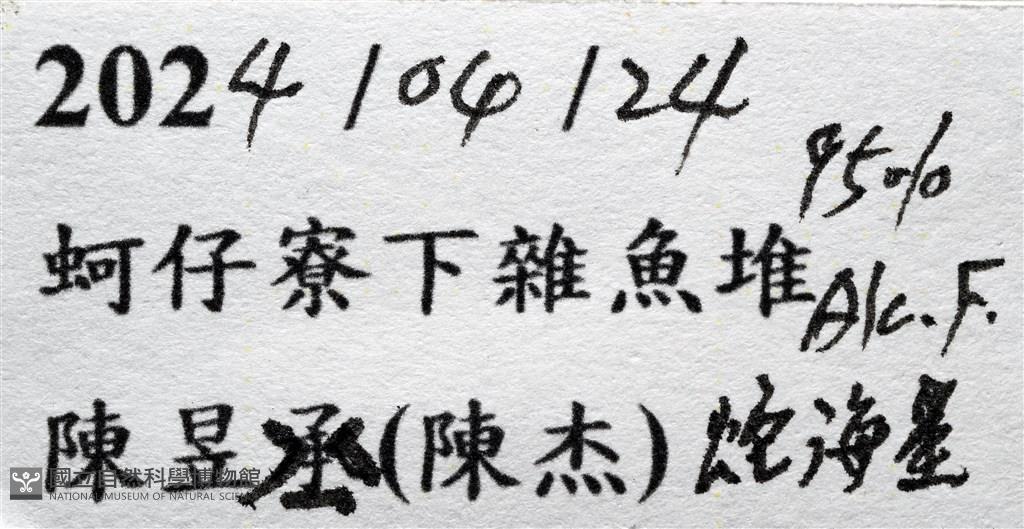 2024/04/24
95%
蚵仔寮下雜魚堆
Alc. F.
陳昱丞(陳杰)蛇海星
國立自然科學博物館
NATIONAL MUSEUM OF NATURAL SCIENCE